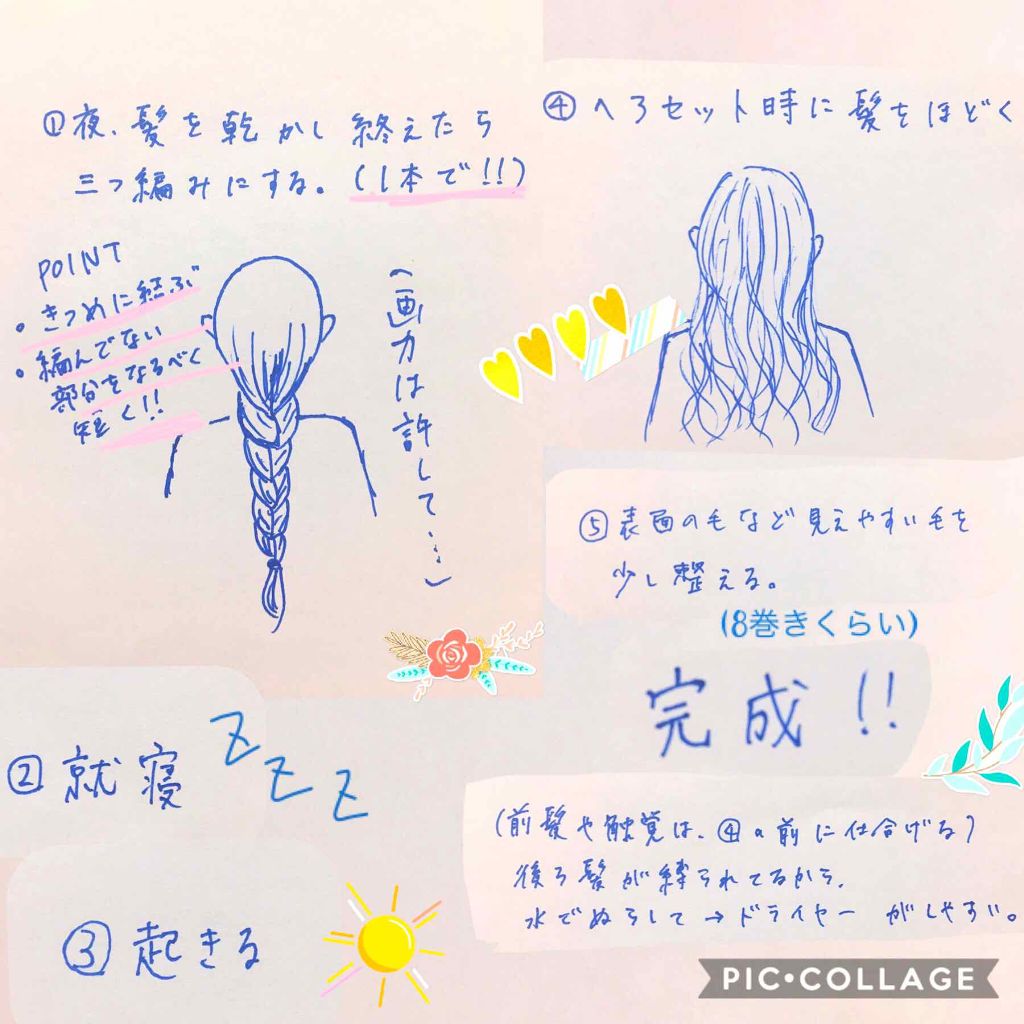 ①夜、髪を乾かし終えたら
三つ編みにする。(1本で!!)
POINT
・きつめに結ぶ
・編んでない
部分をなるべく
短く!!
(画力は許して…)
②就寝 ZZZ
③起きる
④ヘアセット時に髪をほどく
⑤表面の毛など見えやすい毛を
少し整える。
(8巻きくらい)
完成!!
(前髪や触覚は、④の前に仕合げる)
後ろ髪が縛られてるから、
水でぬらして→ドライヤーがしやすい。
PIC•COLLAGE